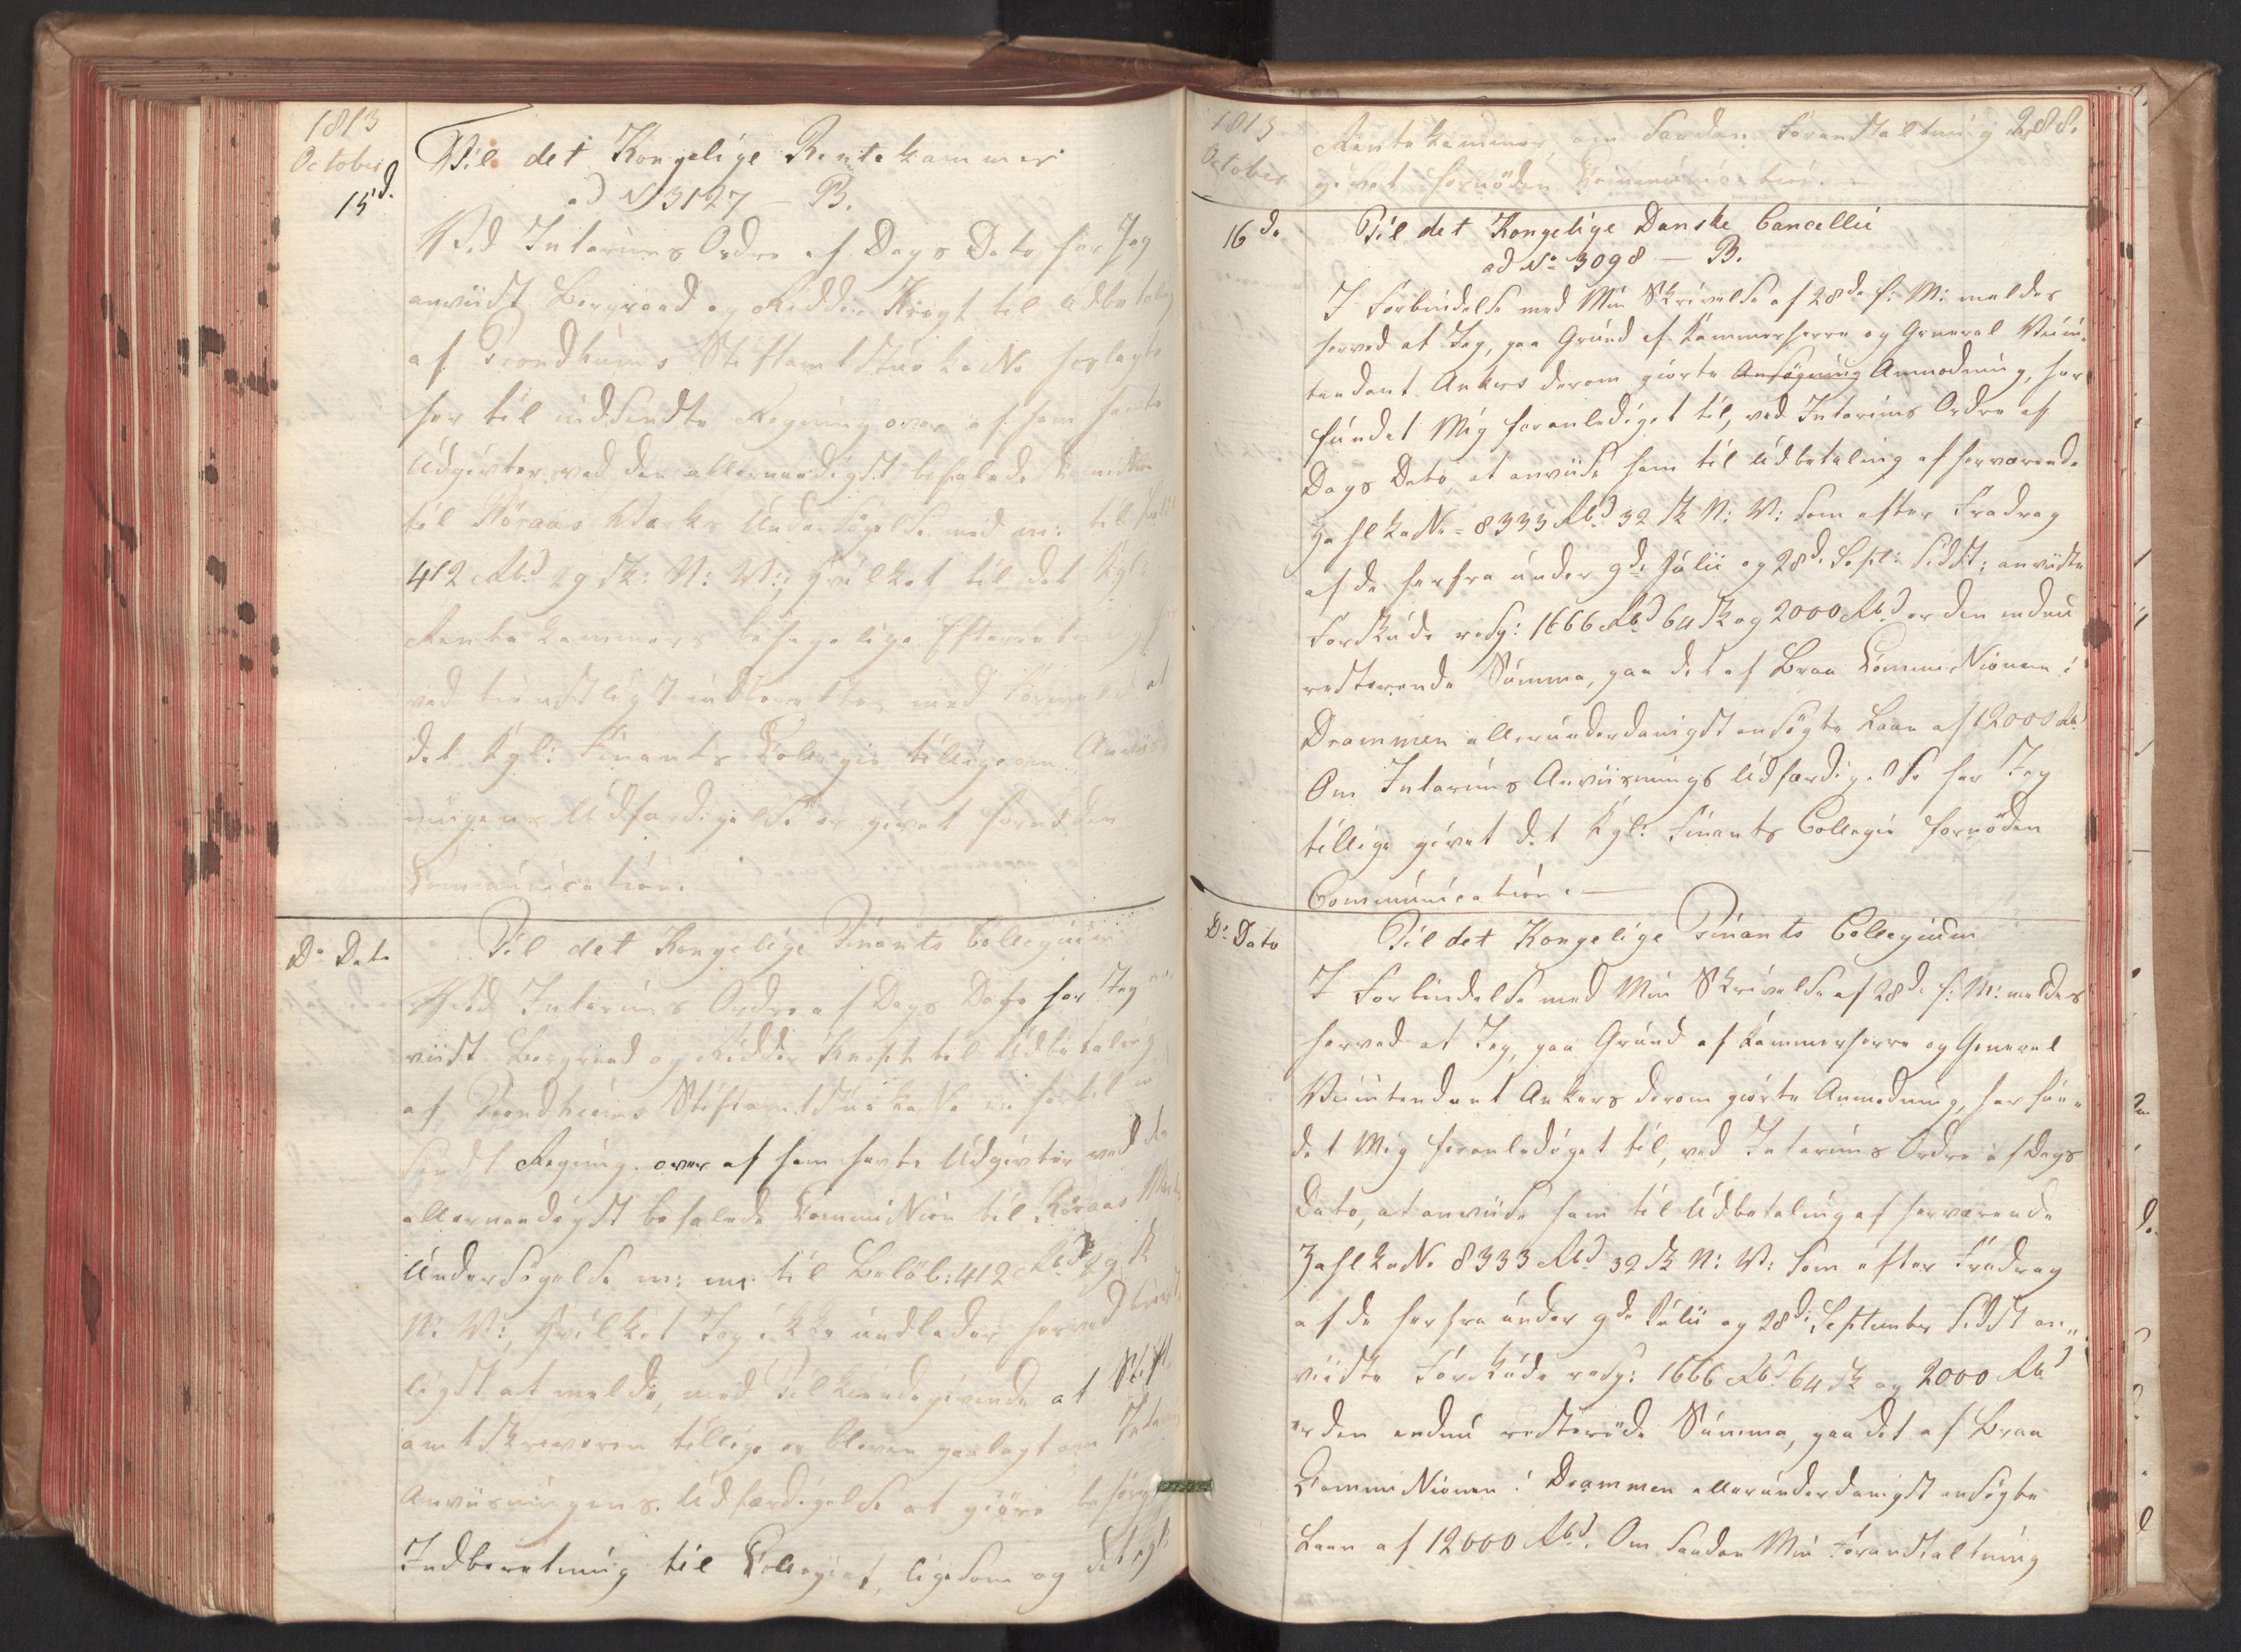 1813
October
15d.
Til det Kongelige Rentekammer
ad No 3127 — B.
Ved Interims Ordre af Dags Dato har Jeg
anviist Bergraad og Ridder Knopt til Udbetaling
af Trondhiems Stiftamtstuekasse
her til indsendte Regning over af ham havte
Udgivter ved den allernaadigst befalede Commission
til Röraas Værks Undersögelse med m: til
412 Rbd 29 sk: N: V:, hvilket til det Kgl:
Rentekammers behagelige Efterretning
ved tienstligst indberettes med Formeld at
det Kgl: Finants Collegie tillige om Anviis-
ningens Udfærdigelse er givet fornöden
Communication.
Do Dato
Til det Kongelige Finants Collegium
Ved Interims Ordre af Dags Dato har Jeg an-
viist Bergraad og Ridder Knopt til Udbetaling
af Trondhiems Stiftamtstuekasse en her til ind
sendt Regning over af ham havte Udgivter ved den
allernaadigst befalede Commission til Röraas Værks
Undersögelse m: m: til Belöb: 412 Rbd 29 sk
N: V:, hvilket Jeg ikke undlader herved
ligst at melde, med Tilkiendegivende at Stift
amtskriveren tillige er bleven paalagt om Interims
Anviisningens Udfærdigelse at giöre behörig
Indberetning til Collegiet, ligesom og det kgl:
1813
October
288.
Rentekammer om saadan Foranstaltning er
givet fornöden Communication.
16de
Til det Kongelige Danske Cancellie
ad No 3098 — B.
I Forbindelse med Min Skrivelse af 28de f: M: meldes
herved at Jeg, paa Grund af Kammerherre og General Vein-
tendant Ankers derom giorte Ansögning Anmodning, har
fundet Mig foranlediget til, ved Interims Ordre af
Dags Dato, at anviise ham til Udbetaling af herværende
Zahlkasse 8333 Rbd 32 sk N: V: som efter Fradrag
af de herfra under 9de Julii og 28de Sept: sidst: anviiste
Forskude resp: 1666 Rbd 64 sk og 2000 Rbd er den endnu
resterende Summa, paa det af Braa Commissionen i
Drammen allerunderdanigst ansögte Laan af 12000 Rbd
Om Interims Anviisnings Udfærdigelse har Jeg
tillige givet det Kgl: Finants Collegie fornöden
Communication. —
Do Dato
Til det Kongelige Finants Collegium
I Forbindelse med Min Skrivelse af 28de f: M: meldes
herved at Jeg, paa Grund af Kammerherre og General
Veiintendant Ankers derom giorte Anmodning, har fun-
det Mig foranlediget til, ved Interims Ordre af Dags
Dato, at anviise ham til Udbetaling af herværende
Zahlkasse 8333 Rbd 32 sk N: V: som efter Fradrag
af de herfra under 9de Julii og 28de September sidst an-
viiste Forskude resp: 1666 Rbd 64 sk og 2000 Rbd
er den endnu resterende Summa, paa det af Braa
Commissionen i Drammen allerunderdanigst ansögte
Laan af 12000 Rbd. Om saadan Min Foranstaltning